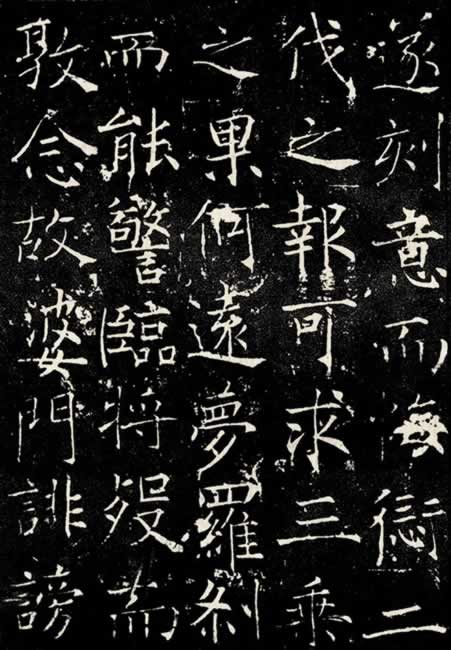 遂刻意而悔愆二
伐之報可求三乘
之果何遠夢羅刹
而能警臨將歿而
敦念故婆門誹謗